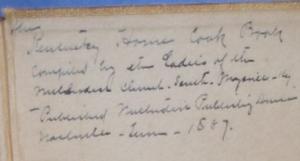 The
Kentucky Home Cook Book
Compiled by the Ladies of the
Methodist Church - South - Maysville - Ky
Published Methodist Publishing House
Nashville - Tenn - 1887.